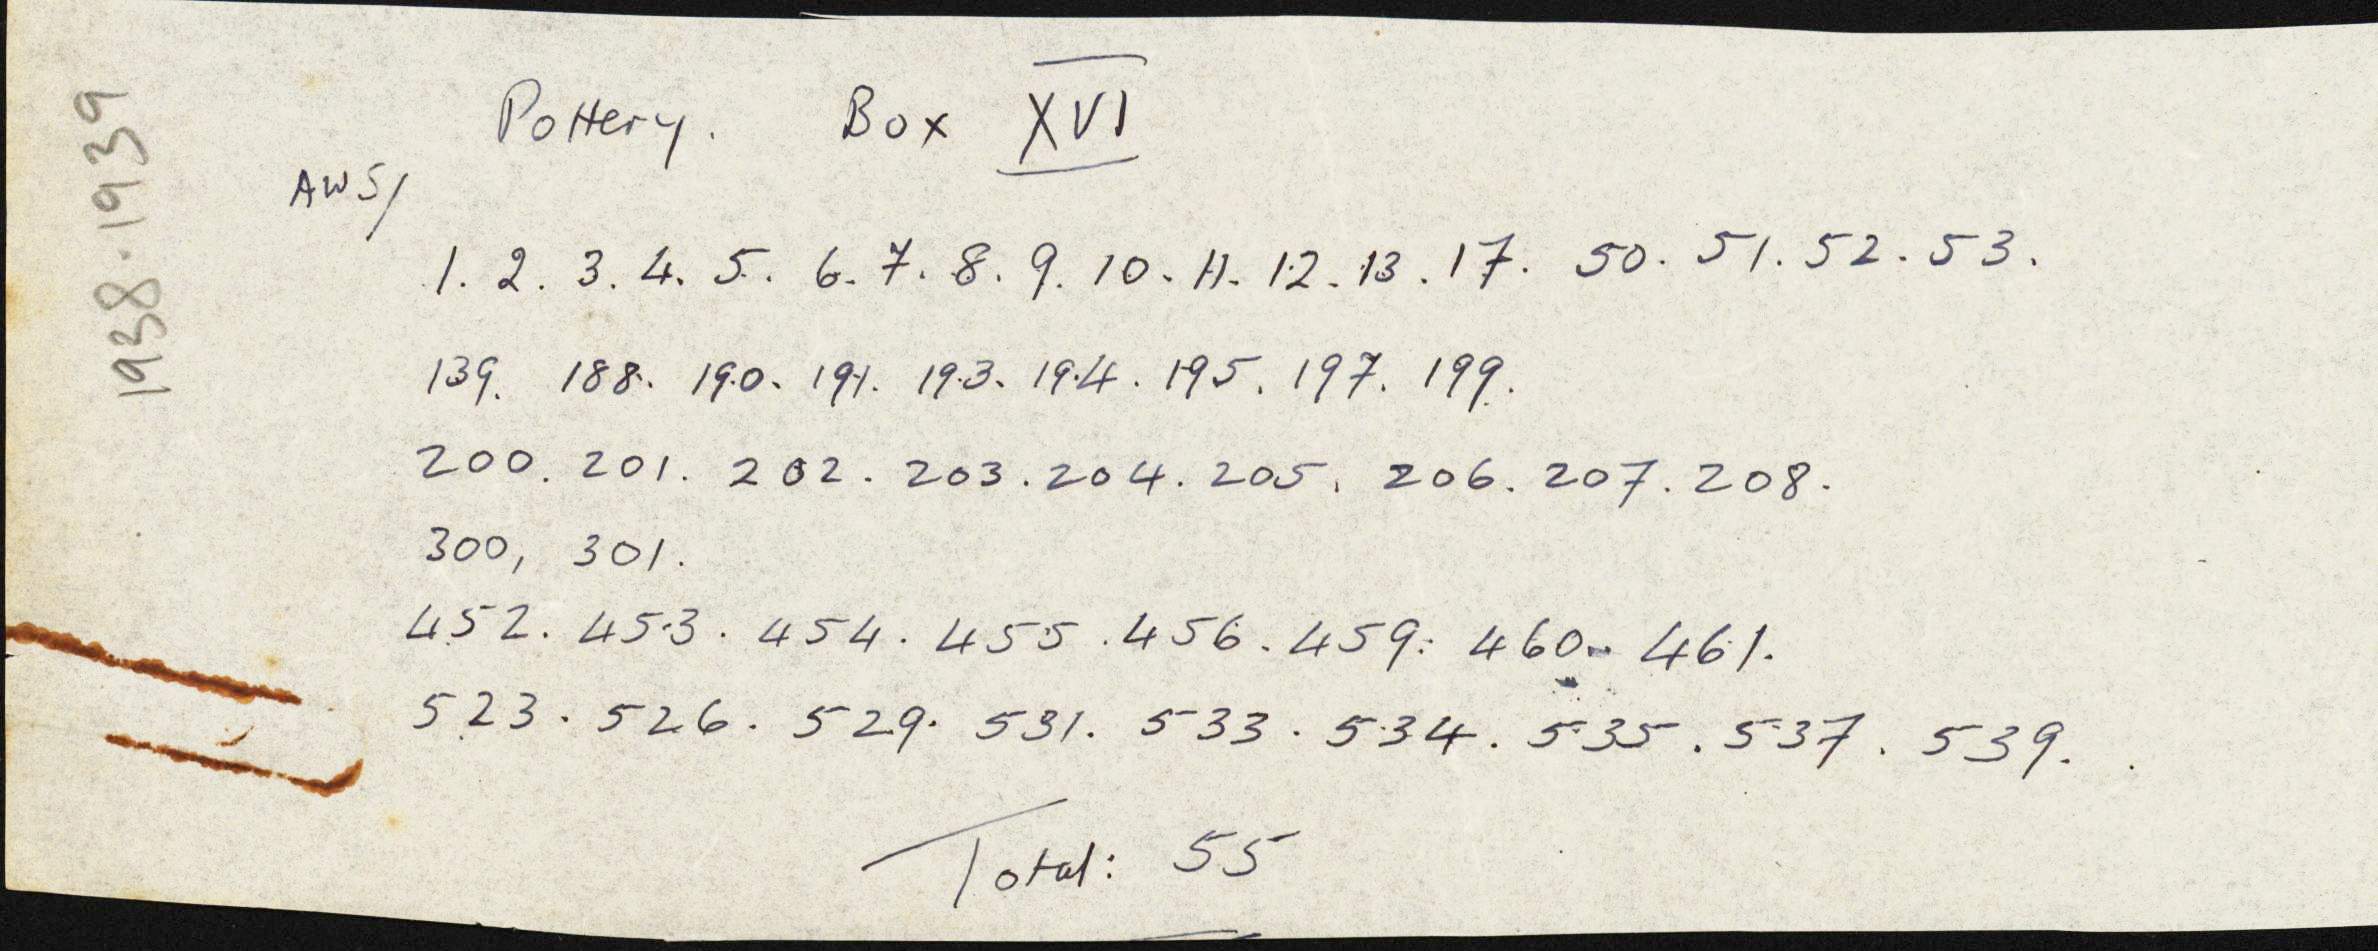 1938.1939
Pottery. Box XVI
AWS/
1. 2. 3. 4. 5. 6. 7. 8. 9. 10. 11. 12. 13. 17. 50. 51. 52. 53.
139. 188. 190. 191. 193. 194. 195. 197. 199.
200. 201. 202. 203. 204. 205. 206. 207. 208.
300, 301.
452. 453. 454. 455. 456. 459. 460. 461.
523. 526. 529. 531. 533. 534. 535. 537. 539.
Total: 55